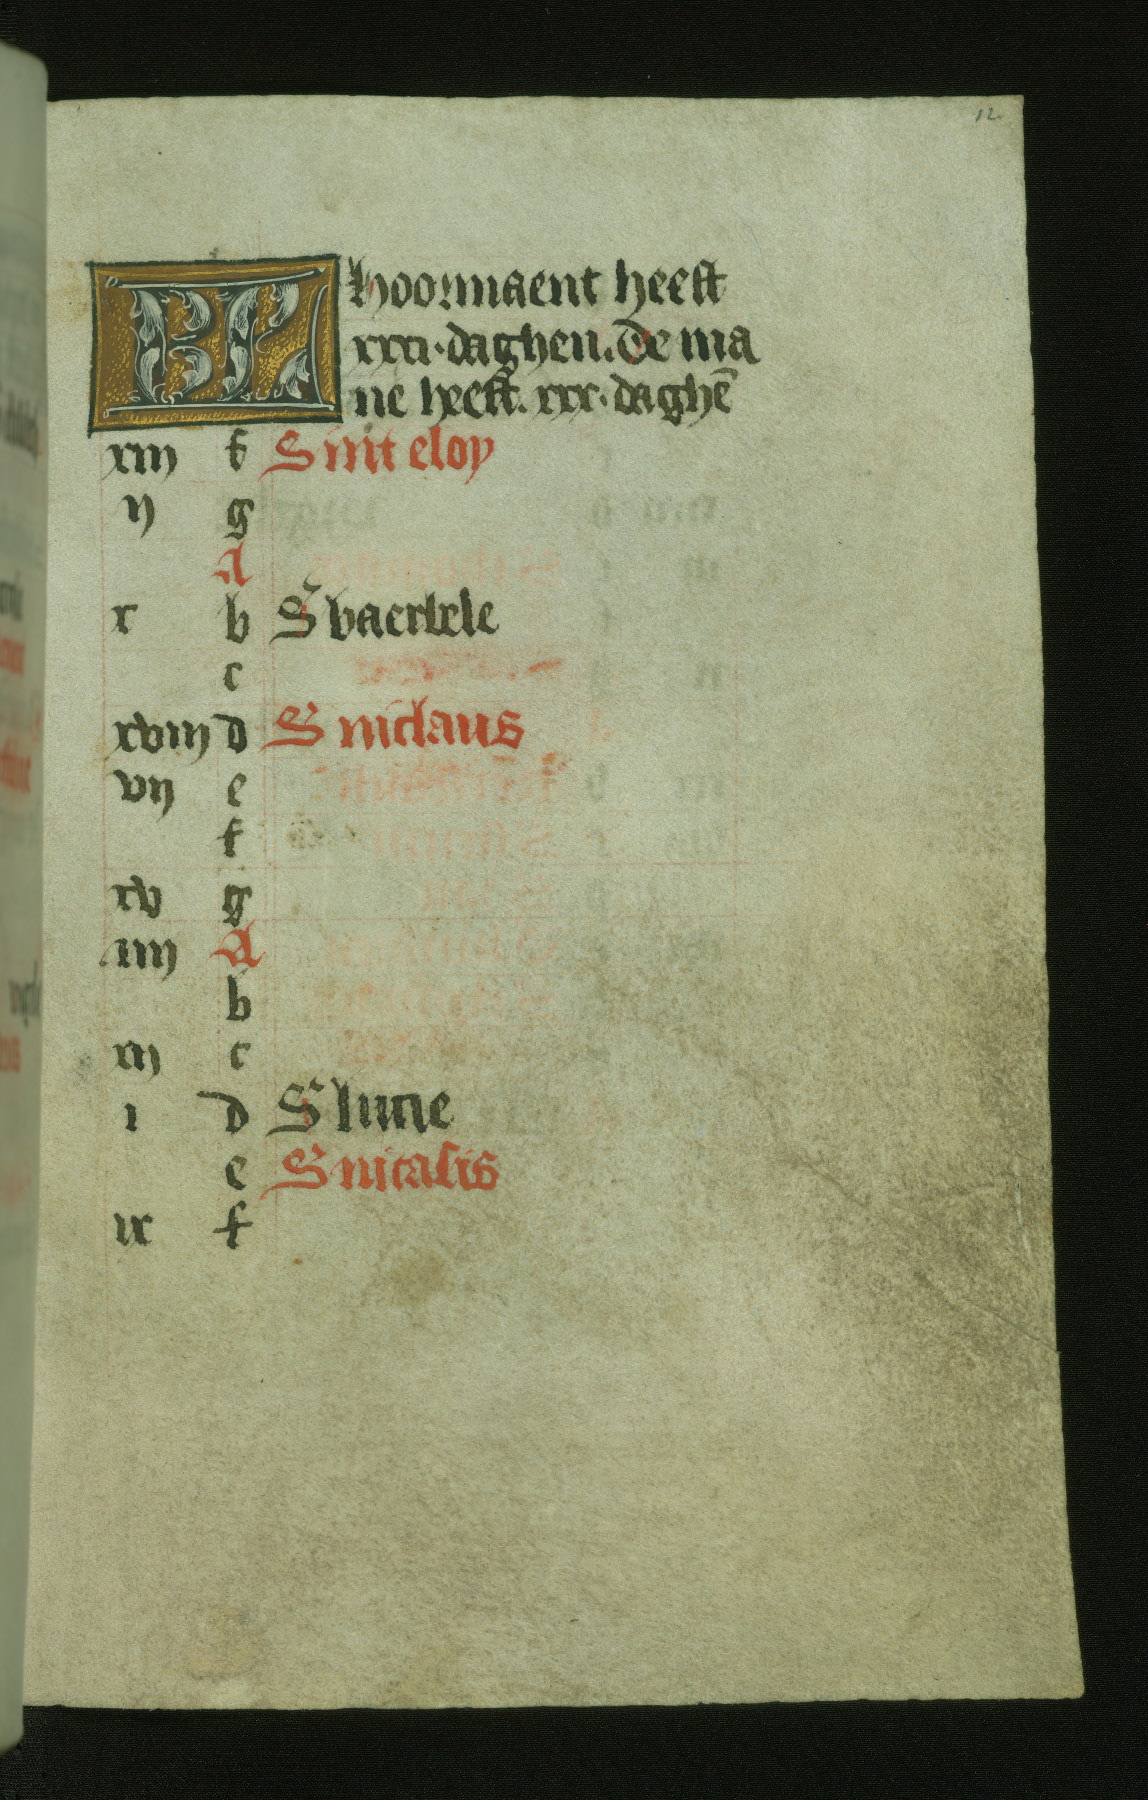 12
KL hoormaent heeft
xxxi·daghen. De ma
ne heeft. xxx·daghē
xiij f Sint eloy
ij g
A
x b S baerbele
c
xviij d S niclaus
vij e
f
xv g
iiij A
b
xij c
i d S lucie
e S nicasis
ix f